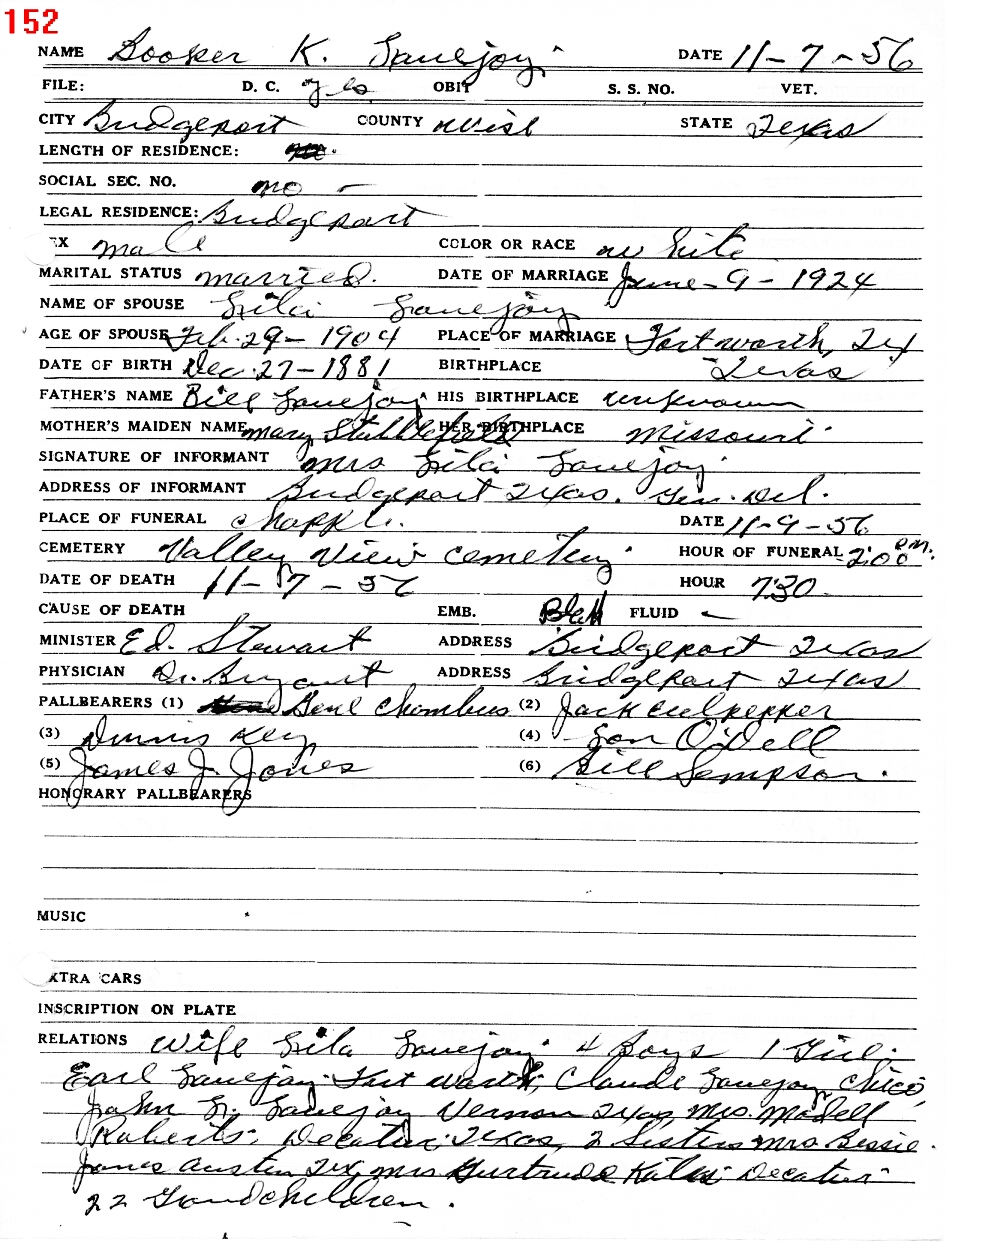 152
NAME Booker K. Lovejoy DATE 11-7-56
FILE: D. C. yes OBIT S. S. NO. VET.
CITY Bridgeport COUNTY Wise STATE Texas
LENGTH OF RESIDENCE:
SOCIAL SEC. NO. no -
LEGAL RESIDENCE: Bridgeport
EX male COLOR OR RACE white
MARITAL STATUS married. DATE OF MARRIAGE June-9-1924
NAME OF SPOUSE Lovejoy
AGE OF SPOUSE Feb. 29-1904 PLACE OF MARRIAGE Fort worth, Tex
DATE OF BIRTH Dec. 27-1881 BIRTHPLACE Texas
FATHER'S NAME Bill Lovejoy HIS BIRTHPLACE unknown
MOTHER'S MAIDEN NAME Mary Stubblefield HER BIRTHPLACE Missouri
SIGNATURE OF INFORMANT Mrs Lovejoy
ADDRESS OF INFORMANT Bridgeport Texas. Gen. Del.
PLACE OF FUNERAL Chappel. DATE 11-9-56
CEMETERY Valley View Cemetery HOUR OF FUNERAL 2:00 P.M.
DATE OF DEATH 11-7-56 HOUR 7:30
CAUSE OF DEATH EMB. FLUID -
MINISTER Ed. Stewart ADDRESS Bridgeport Texas
PHYSICIAN Dr. Bryant ADDRESS Bridgeport Texas
PALLBEARERS (1) Gene Chambers (2) Jack Culpepper
(3) Dennis Key (4) Lon O'Dell
(5) James J. Jones (6) Bill Sempson.
HONORARY PALLBEARERS
MUSIC
XTRA CARS
INSCRIPTION ON PLATE
RELATIONS Wife Lovejoy 4 Boys 1 Girl.
Earl Lovejoy Fort Worth, Claude Lovejoy Chico,
John Lovejoy Vernon Texas, Mrs. Modell
Roberts. Decatur. Texas, 2 Sisters Mrs Bessie
Jones Austin Tex, Mrs Gurtrude Decatur
22 Grandchildren.